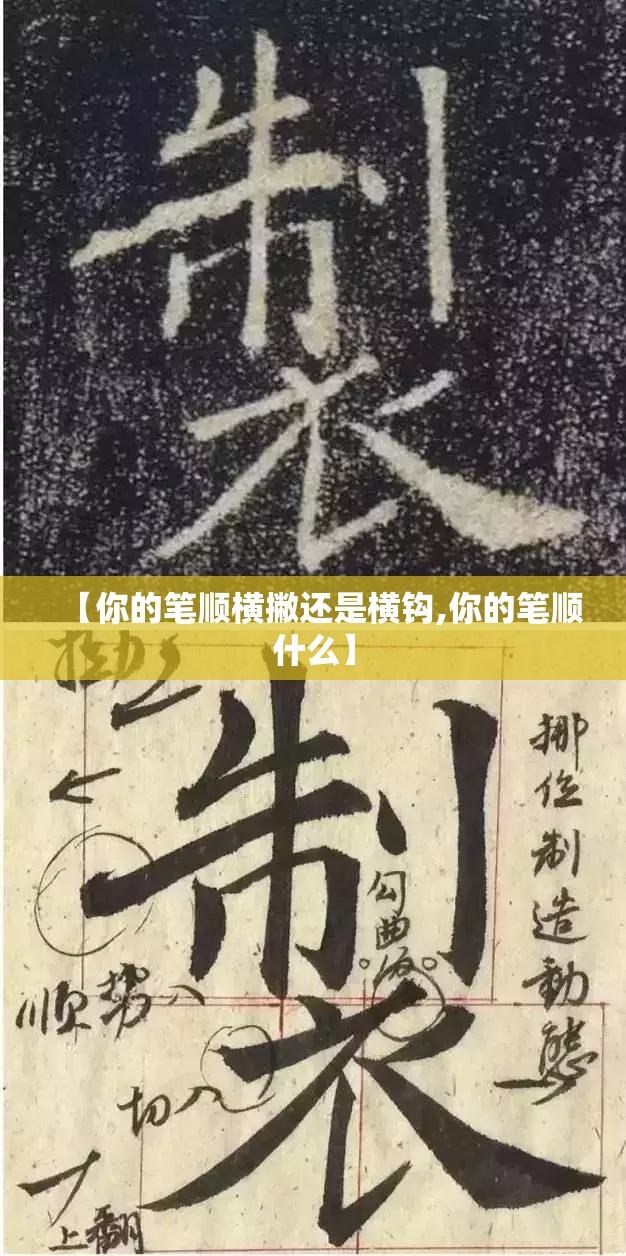 製
【你的笔顺横撇还是横钩,你的笔顺
什么】
製
挪位制造動態
顺势入
切入
上翻